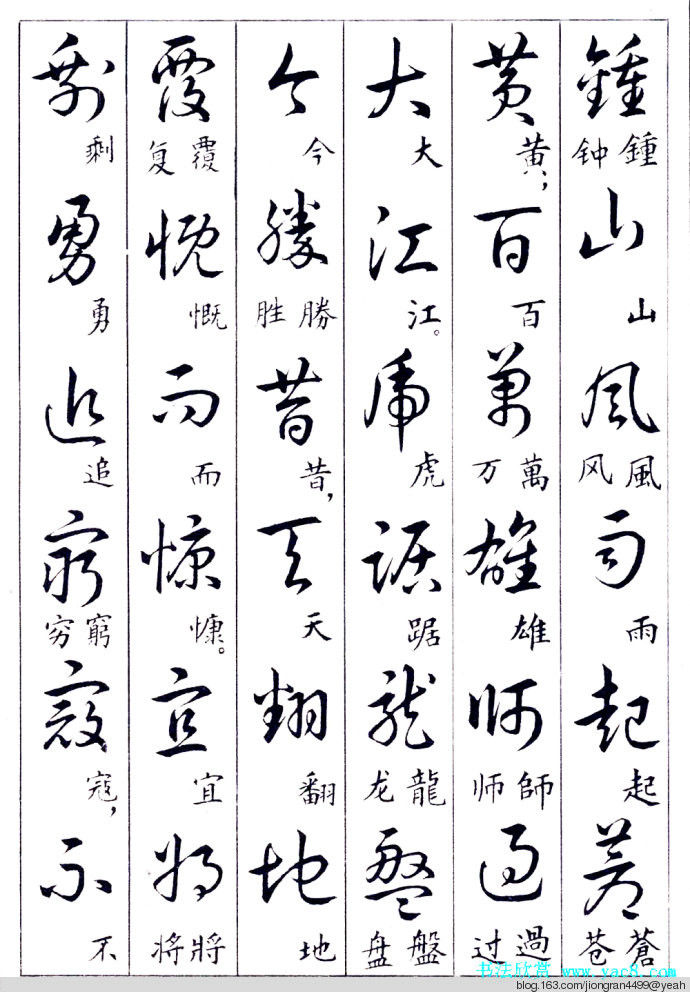 鍾 钟 鍾 山 山 風 风 風 雨 雨 起 起 蒼 苍 蒼
黄 黄， 百 百 萬 万 萬 雄 雄 師 师 師 過 过 過
大 大 江 江。 虎 虎 踞 踞 龍 龙 龍 盤 盘 盤
今 今 勝 胜 勝 昔 昔， 天 天 翻 翻 地 地
覆 复 覆 慨 慨 而 而 慷 慷。 宜 宜 將 将 將
剩 剩 勇 勇 追 追 窮 穷 窮 寇 寇， 不 不
书法欣赏 www.yac8.com
blog.163.com/jiongran4499@yeah